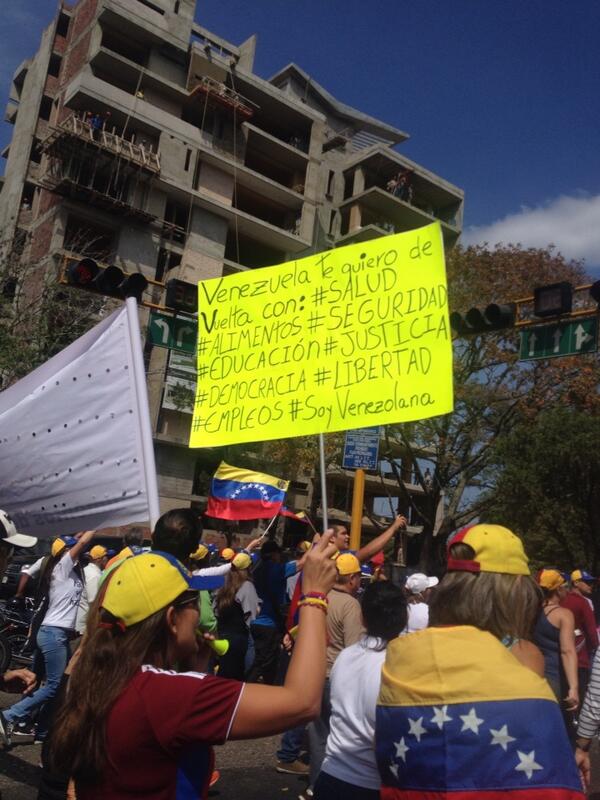 Venezuela te quiero de
Vuelta con: #SALUD
#ALIMENTOS #SEGURIDAD
#EDUCACIÓN #JUSTICIA
#DEMOCRACIA #LIBERTAD
#EMPLEOS #Soy Venezolana